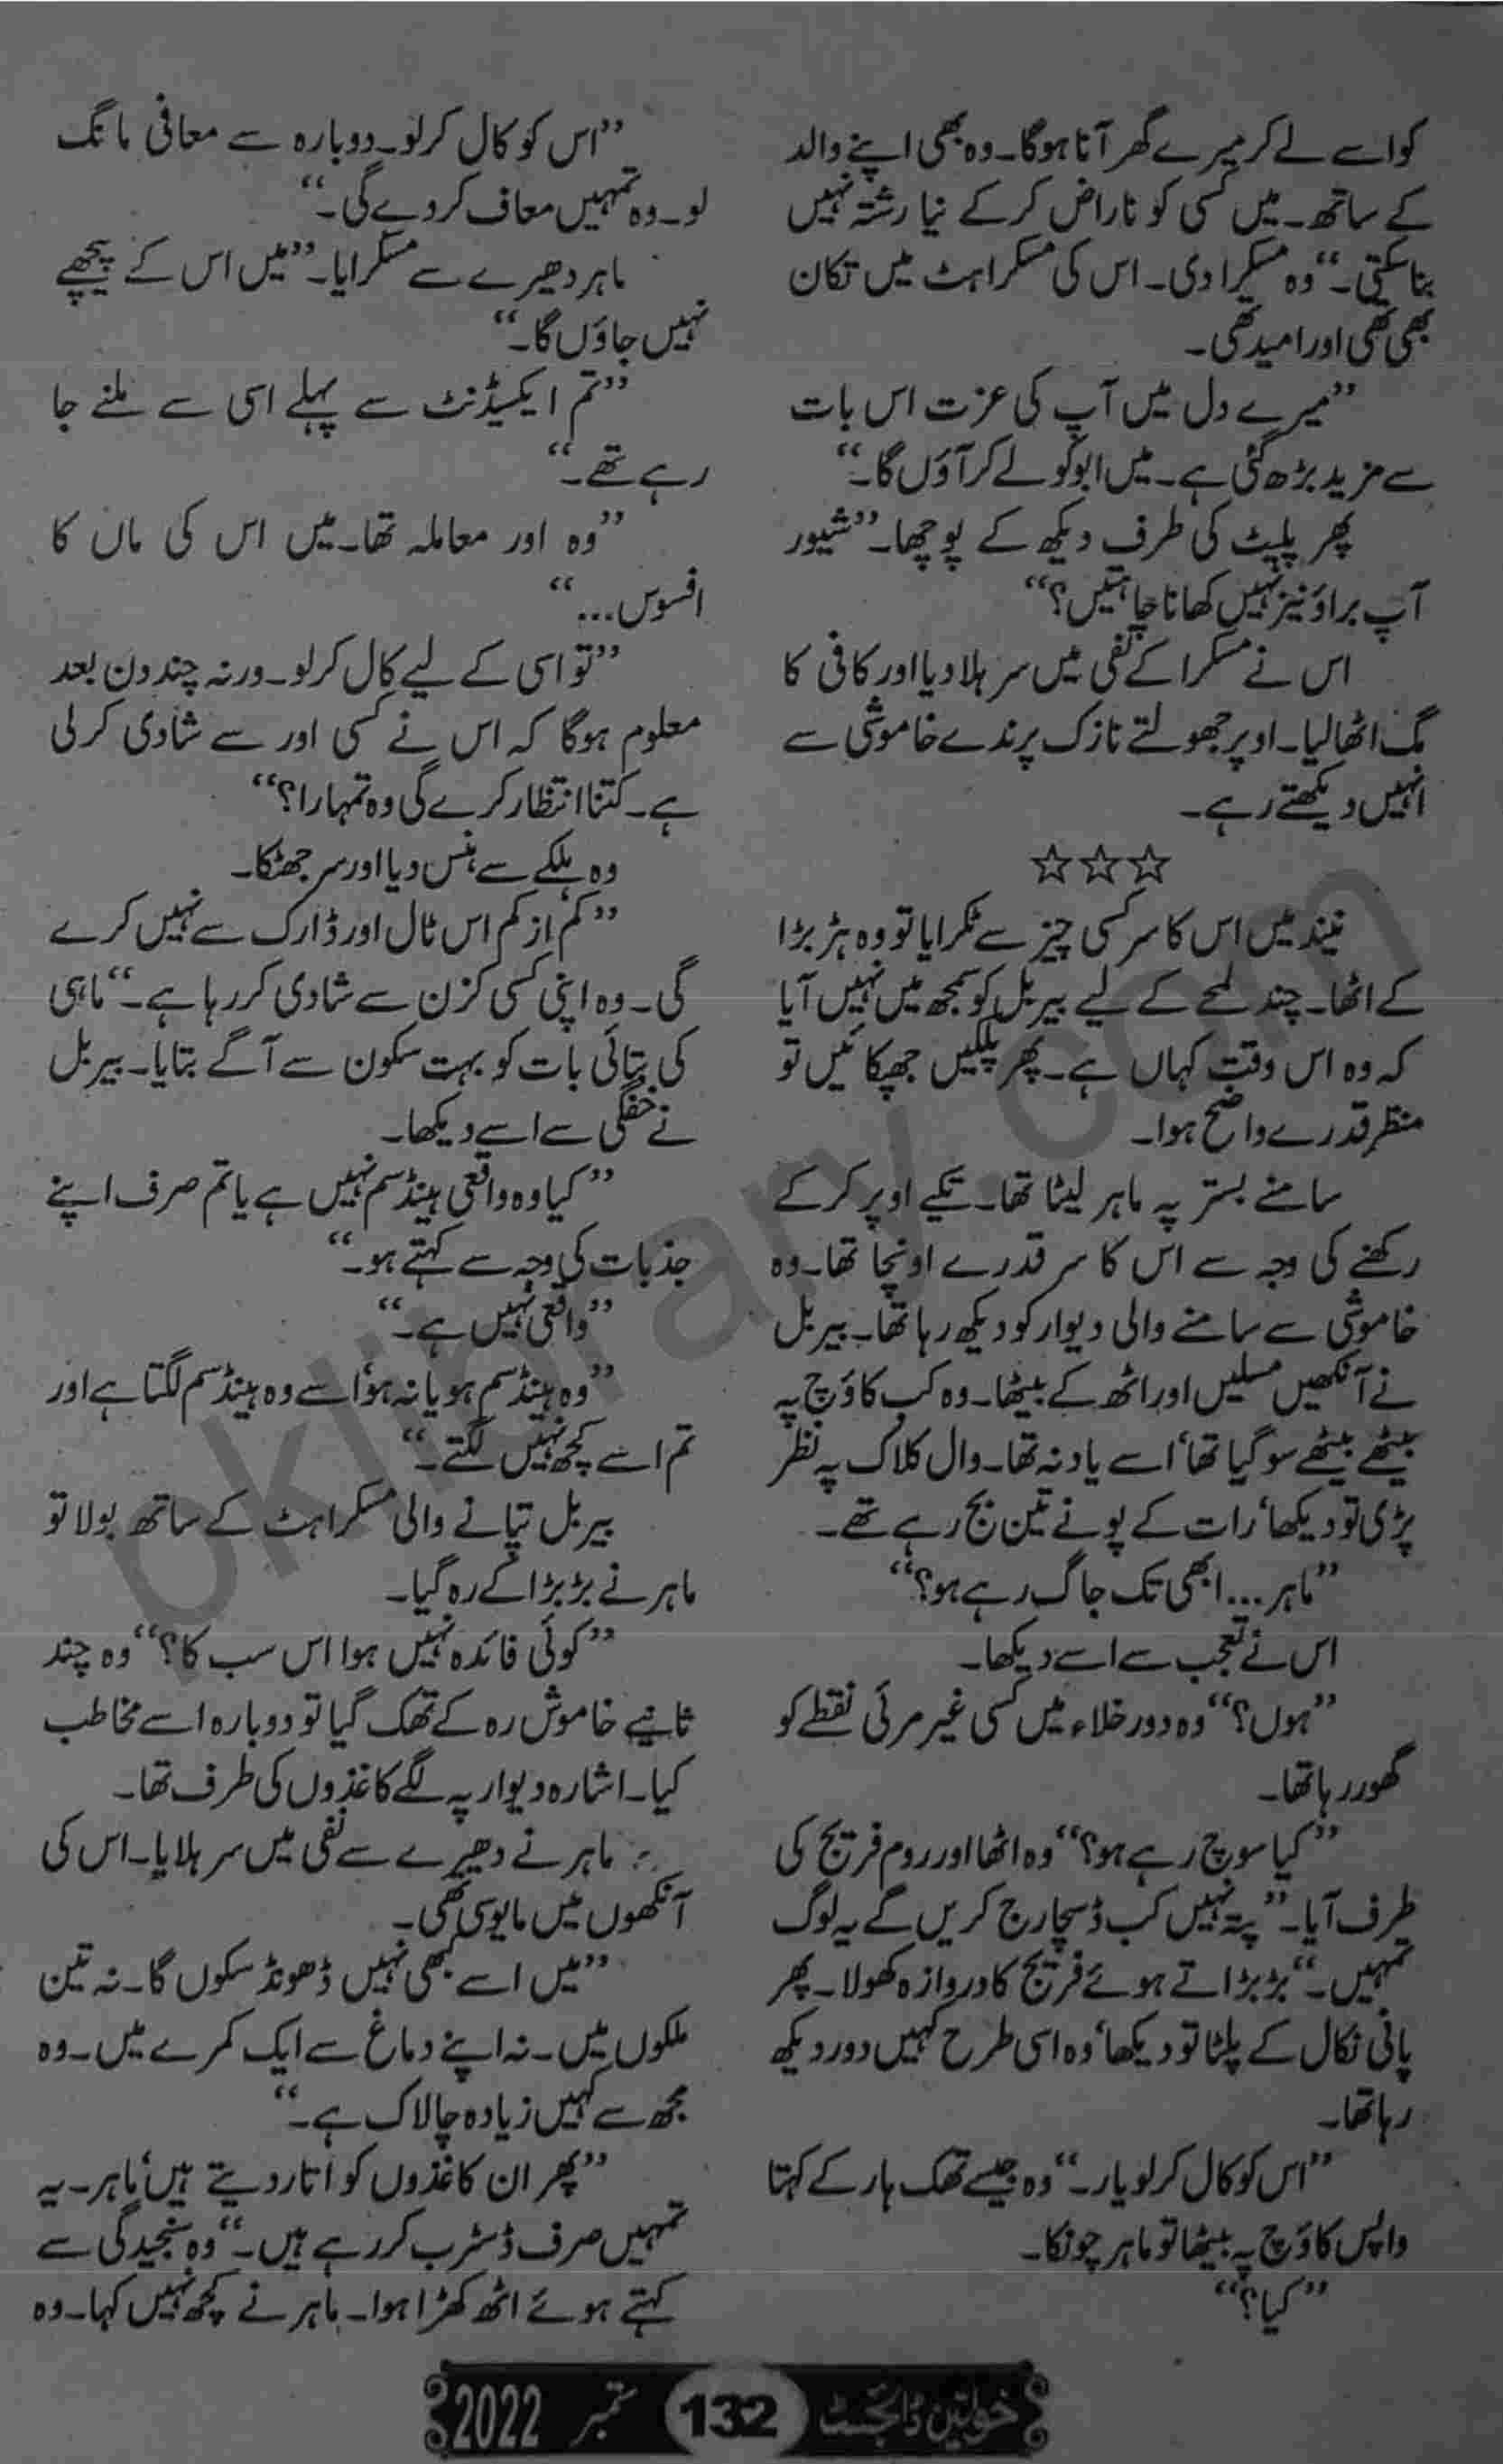 کو اسے لے کر میرے گھر آنا ہوگا۔ وہ بھی اپنے والد
کے ساتھ۔ میں کسی کو ناراض کر کے نیا رشتہ نہیں
بنا سکتی۔“ وہ مسکرا دی۔ اس کی مسکراہٹ میں تکان
بھی تھی اور امید تھی۔
”میرے دل میں آپ کی عزت اس بات
سے مزید بڑھ گئی ہے۔ میں ابو کو لے کر آؤں گا۔“
پھر پلیٹ کی طرف دیکھ کے پوچھا۔ ”شیور
آپ براؤنیز نہیں کھانا چاہتیں؟“
اس نے مسکرا کے نفی میں سر ہلا دیا اور کافی کا
مگ اٹھا لیا۔ اوپر جھولتے نازک پرندے خاموشی سے
انہیں دیکھتے رہے۔
☆☆☆
نیند میں اس کا سر کسی چیز سے ٹکرایا تو وہ ہڑبڑا
کے اٹھا۔ چند لمحے کے لیے بیربل کو سمجھ میں نہیں آیا
کہ وہ اس وقت کہاں ہے۔ پھر پلکیں جھپکائیں تو
منظر قدرے واضح ہوا۔
سامنے بستر پہ ماہر لیٹا تھا۔ تکیے اوپر کر کے
رکھنے کی وجہ سے اس کا سر قدرے اونچا تھا۔ وہ
خاموشی سے سامنے والی دیوار کو دیکھ رہا تھا۔ بیربل
نے آنکھیں مسلیں اور اٹھ کے بیٹھا۔ وہ کب کاؤچ پہ
بیٹھے بیٹھے سو گیا تھا، اسے یاد نہ تھا۔ وال کلاک پہ نظر
پڑی تو دیکھا، رات کے پونے تین بج رہے تھے۔
”ماہر... ابھی تک جاگ رہے ہو؟“
اس نے تعجب سے اسے دیکھا۔
”ہوں؟“ وہ دور خلاء میں کسی غیر مرئی نقطے کو
گھور رہا تھا۔
”کیا سوچ رہے ہو؟“ وہ اٹھا اور روم فریج کی
طرف آیا۔ ”پتہ نہیں کب ڈسچارج کریں گے یہ لوگ
تمہیں۔“ بڑبڑاتے ہوئے فریج کا دروازہ کھولا۔ پھر
پانی نکال کے پلٹا تو دیکھا، وہ اسی طرح کہیں دور دیکھ
رہا تھا۔
”اس کو کال کر لو یار۔“ وہ جیسے تھک ہار کے کہتا
واپس کاؤچ پہ بیٹھا تو ماہر چونکا۔
”کیا؟“
”اس کو کال کر لو۔ دوبارہ سے معافی مانگ
لو۔ وہ تمہیں معاف کر دے گی۔“
ماہر دھیرے سے مسکرایا۔ ”میں اس کے پیچھے
نہیں جاؤں گا۔“
”تم ایکسیڈنٹ سے پہلے اسی سے ملنے جا
رہے تھے۔“
”وہ اور معاملہ تھا۔ میں اس کی ماں کا
افسوس...“
”تو اسی کے لیے کال کر لو۔ ورنہ چند دن بعد
معلوم ہوگا کہ اس نے کسی اور سے شادی کر لی
ہے۔ کتنا انتظار کرے گی وہ تمہارا؟“
وہ ہلکے سے ہنس دیا اور سر جھٹکا۔
”کم از کم اس ٹال اور ڈارک سے نہیں کرے
گی۔ وہ اپنی کسی کزن سے شادی کر رہا ہے۔“ ماہی
کی بتائی بات کو بہت سکون سے آگے بتایا۔ بیربل
نے خفگی سے اسے دیکھا۔
”کیا وہ واقعی ہینڈسم نہیں ہے یا تم صرف اپنے
جذبات کی وجہ سے کہتے ہو۔“
”واقعی نہیں ہے۔“
”وہ ہینڈسم ہو یا نہ ہو، اسے وہ ہینڈسم لگتا ہے اور
تم اسے کچھ نہیں لگتے۔“
بیربل تپانے والی مسکراہٹ کے ساتھ بولا تو
ماہر نے بڑبڑا کے رہ گیا۔
”کوئی فائدہ نہیں ہوا اس سب کا؟“ وہ چند
ثانیے خاموش رہ کے تھک گیا تو دوبارہ اسے مخاطب
کیا۔ اشارہ دیوار پہ لگے کاغذوں کی طرف تھا۔
ماہر نے دھیرے سے نفی میں سر ہلایا۔ اس کی
آنکھوں میں مایوسی تھی۔
”میں اسے کبھی نہیں ڈھونڈ سکوں گا۔ نہ تین
ملکوں میں۔ نہ اپنے دماغ سے ایک کمرے میں۔ وہ
مجھ سے کہیں زیادہ چالاک ہے۔“
”پھر ان کاغذوں کو اتار دیتے ہیں، ماہر۔ یہ
تمہیں صرف ڈسٹرب کر رہے ہیں۔“ وہ سنجیدگی سے
کہتے ہوئے اٹھ کھڑا ہوا۔ ماہر نے کچھ نہیں کہا۔ وہ
خواتین ڈائجسٹ 132 ستمبر 2022
oklibrary.com